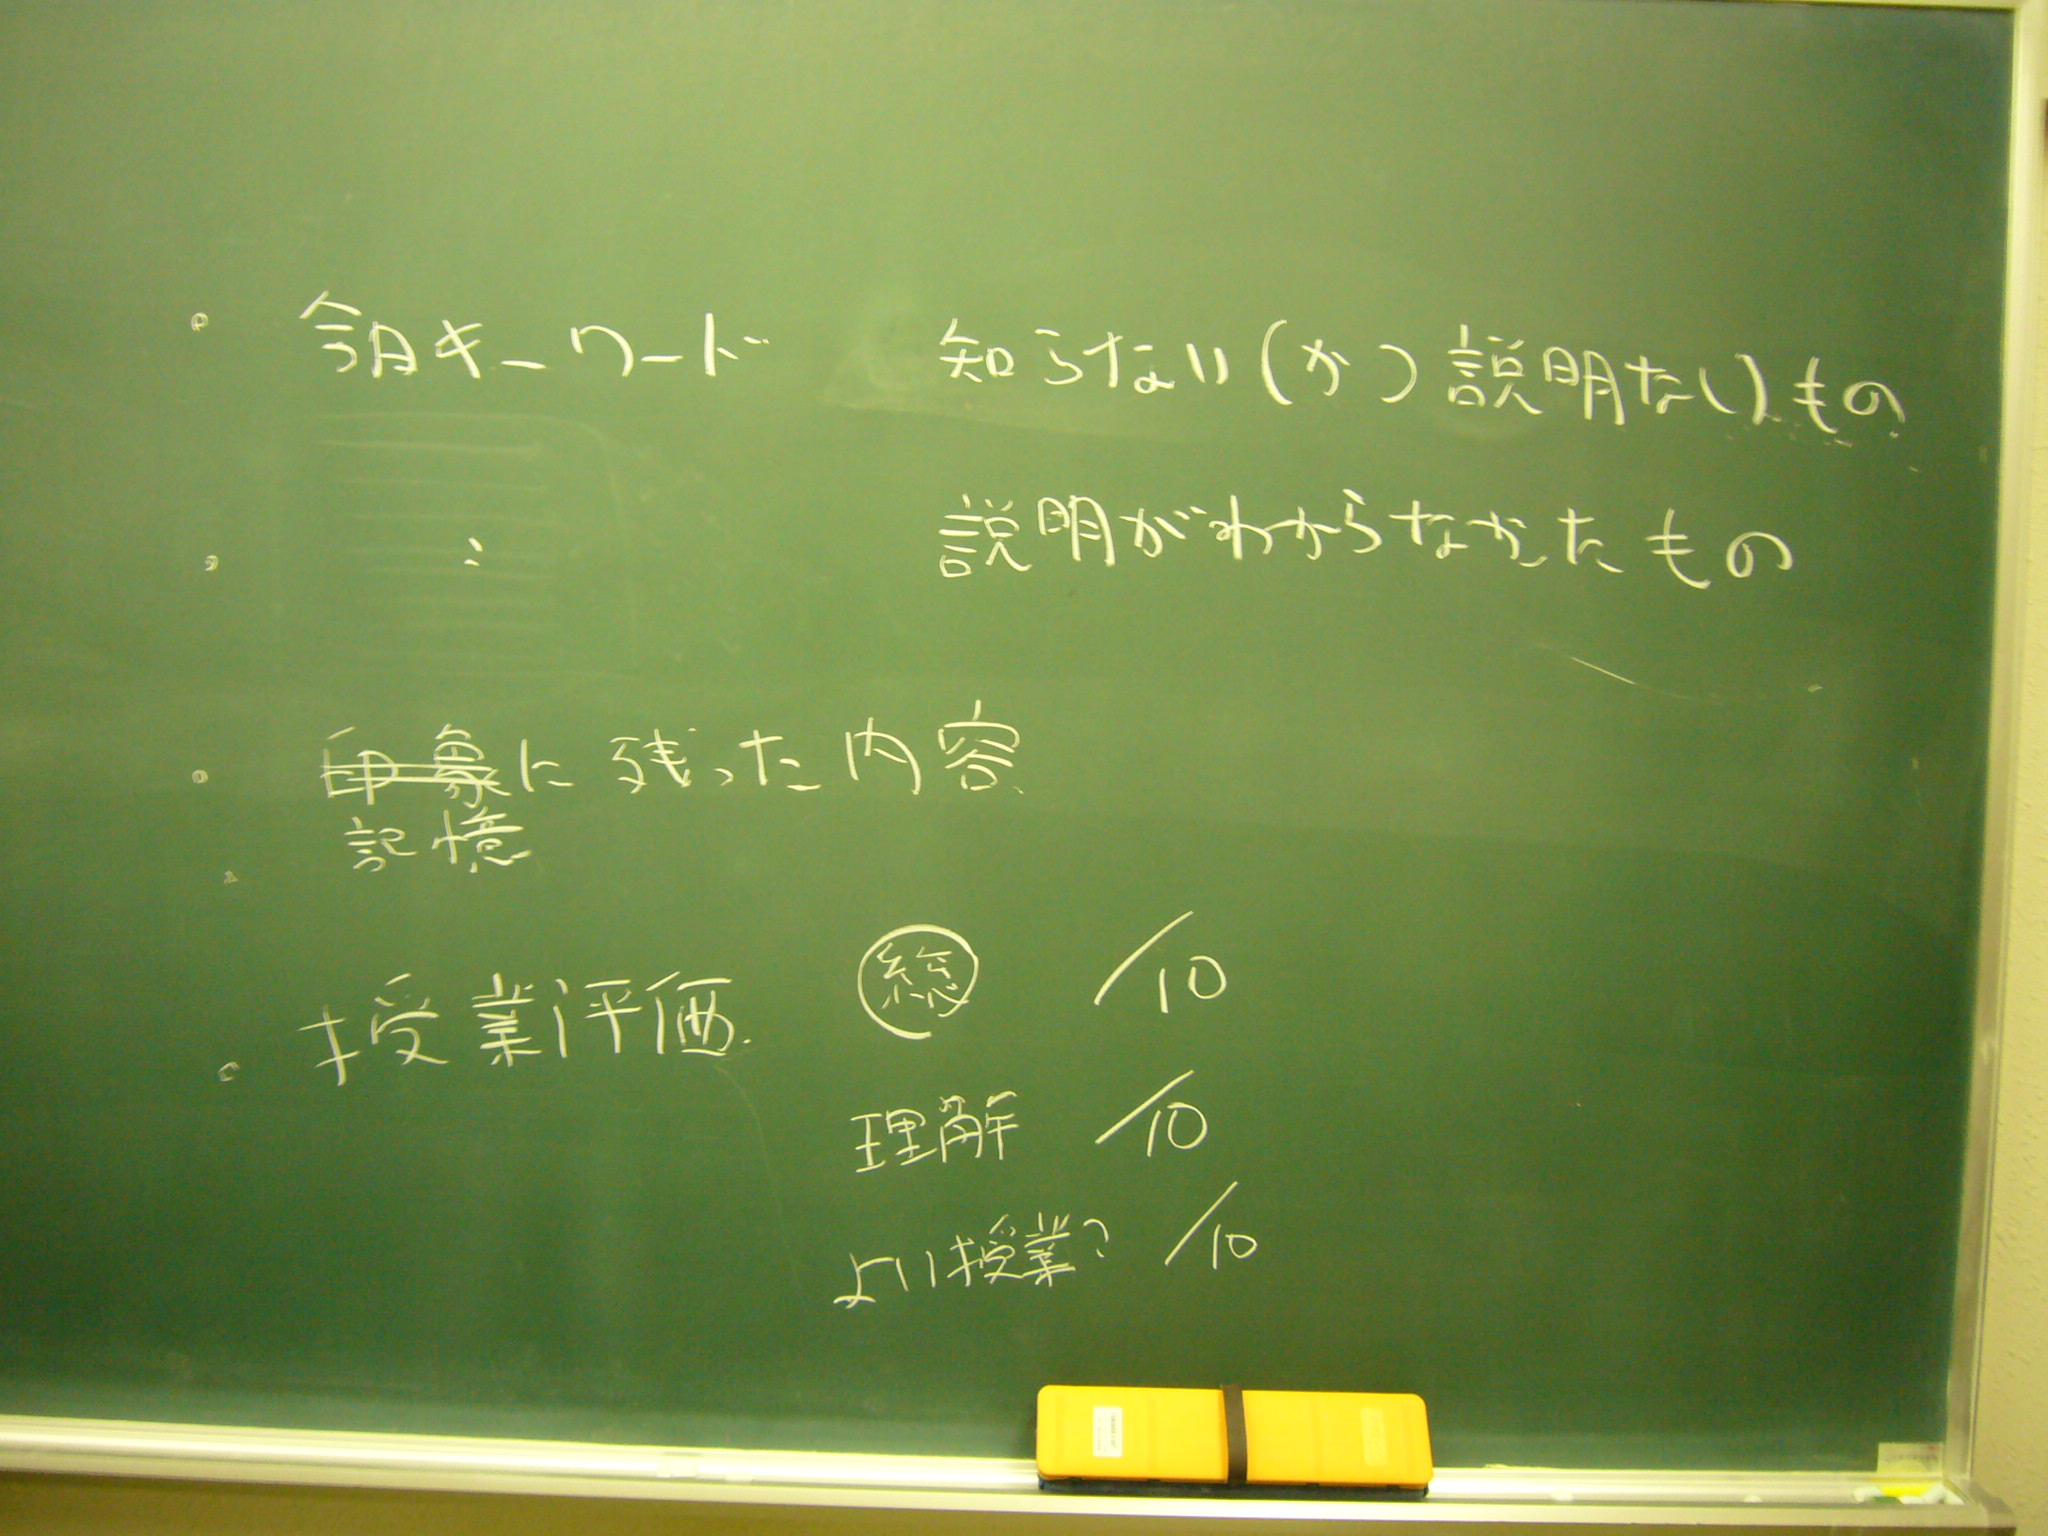 ・ 今日キーワード 知らない(かつ説明ない)もの
・ 〃 説明がわからなかったもの
・ 印象に残った内容
記憶
・ 授業評価 総 /10
理解 /10
よい授業? /10